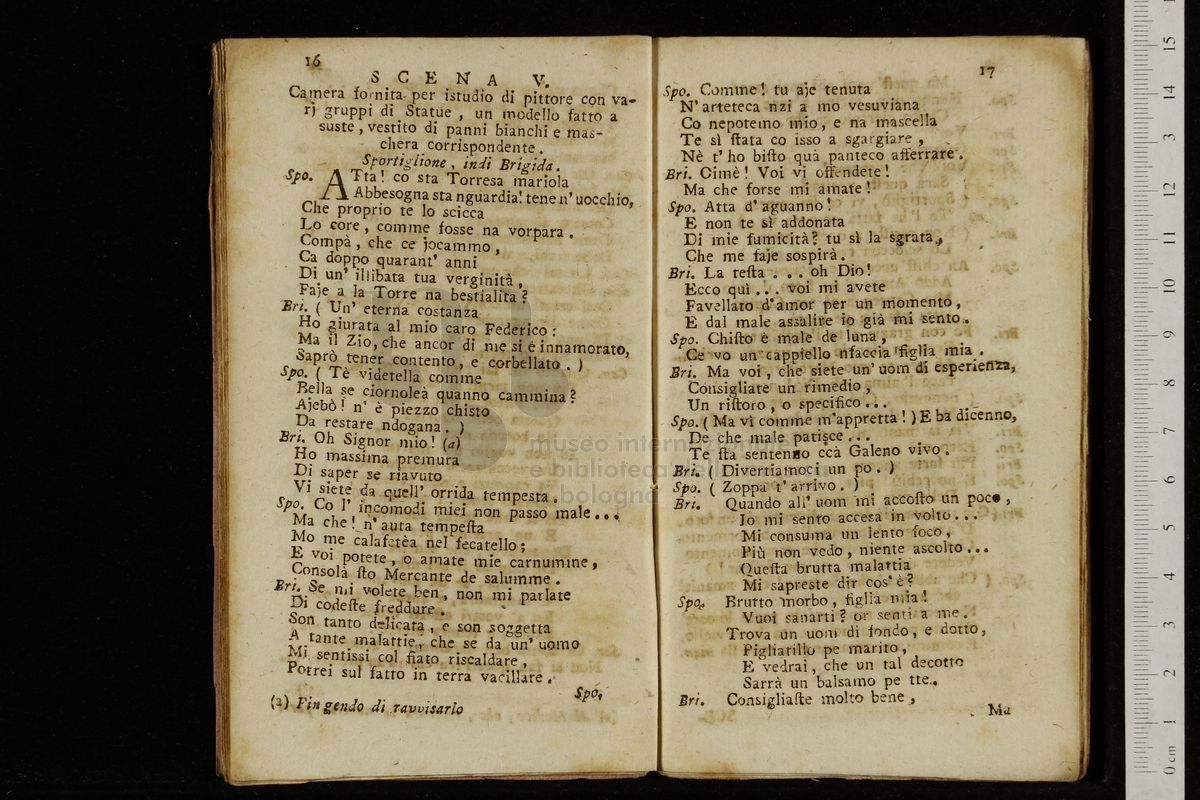 16
SCENA V.
Camera fornita per istudio di pittore con va-
rj gruppi di Statue, un modello fatto a
suste, vestito di panni bianchi e mas-
chera corrispondente.
Sportiglione, indi Brigida.
Spo. ATta! co sta Torresa mariola
Abbesogna sta nguardia! tene n' uocchio,
Che proprio te lo scicca
Lo core, comme fosse na vorpara.
Compà, che ce jocammo,
Ca doppo quarant' anni
Di un' illibata tua verginità,
Faje a la Torre na bestialita?
Bri. ( Un' eterna costanza
Ho giurata al mio caro Federico:
Ma il Zio, che ancor di me si è innamorato,
Saprò tener contento, e corbellato. )
Spo. ( Tè videtella comme
Bella se ciornoleà quanno cammina?
Ajebò! n' è piezzo chisto
Da restare ndogana. )
Bri. Oh Signor mio! (a)
Ho massima premura
Di saper se riavuto
Vi siete da quell' orrida tempesta.
Spo. Co l' incomodi miei non passo male...
Ma che! n' auta tempeſta
Mo me calafetèa nel fecatello;
E voi potete, o amate mie carnumme,
Consolà ſto Mercante de salumme.
Bri. Se mi volete ben, non mi parlate
Di codeſte freddure.
Son tanto delicata, e son soggetta
A tante malattie, che se da un' uomo
Mi sentissi col fiato riscaldare,
Potrei sul fatto in terra vacillare.
Spo.
(a) Fingendo di ravvisarlo
17
Spo. Comme! tu aje tenuta
N' arteteca nzi a mo vesuviana
Co nepotemo mio, e na mascella
Te sì ſtata co isso a sgargiare,
Nè t' ho biſto quà panteco afferrare.
Bri. Oimè! Voi vi offendete!
Ma che forse mi amate!
Spo. Atta d' aguanno!
E non te sì addonata
Di mie fumicità? tu sì la sgrata,
Che me faje sospirà.
Bri. La teſta ... oh Dio!
Ecco quì... voi mi avete
Favellato d'amor per un momento,
E dal male assalire io già mi sento.
Spo. Chiſto è male de luna,
Ce vo un cappiello nfaccia figlia mia.
Bri. Ma voi, che siete un' uom di esperienza,
Consigliate un rimedio,
Un riſtoro, o specifico...
Spo. ( Ma vì comme m'appretta! ) E ba dicenno,
De che male patisce...
Te ſta sentenno ccà Galeno vivo.
Bri. ( Divertiamoci un po. )
Spo. ( Zoppa t' arrivo. )
Bri. Quando all' uom mi accoſto un poco,
Io mi sento accesa in volto...
Mi consuma un lento foco,
Più non vedo, niente ascolto...
Queſta brutta malattia
Mi sapreste dir cos' è?
Spo. Brutto morbo, figlia mia!
Vuoi sanarti? or senti a me.
Trova un uom di fondo, e dotto,
Pigliatillo pe marito,
E vedrai, che un tal decotto
Sarrà un balsamo pe tte.
Bri. Consigliaſte molto bene,
Ma
museo internazionale
e biblioteca
bologna
0 cm 1 2 3 4 5 6 7 8 9 10 11 12 13 14 15